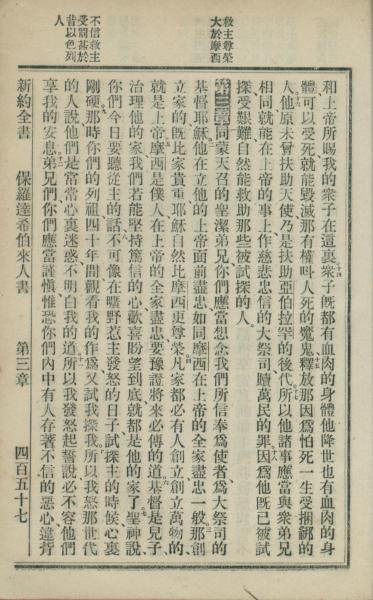 救主尊榮
大於摩西
不信救主
受罰甚於
昔以色列
人
和上帝所賜我的衆子在這裏衆子旣都有血肉的身體他降世也有血肉的身
體可以受死就能毀滅那有權叫人死的魔鬼釋放那因爲怕死一生受捆綁的
人他原未曾扶助天使乃是扶助亞伯拉罕的後代所以他諸事應當與衆弟兄
相同就能在上帝的事上作慈悲忠信的大祭司贖萬民的罪因爲他旣已被試
探受艱難自然能救助那些被試探的人
第三章同蒙天召的聖潔弟兄你們應當想念我們所信奉爲使者爲大祭司的
基督耶穌他在立他的上帝面前盡忠如同摩西在上帝的全家盡忠一般那創
立家的旣比家貴重耶穌自然比摩西更尊榮凡家都必有人創立創立萬物的
就是上帝摩西是僕人在上帝的全家盡忠要豫證將來必傳的道基督是兒子
治理他的家我們若能堅持篤信的心歡喜盼望到底就都是他的家了聖神說
你們今日要聽從主的話不可像在曠野惹主發怒的日子試探主的時候心裏
剛硬那時你們的列祖四十年間觀看我的作爲又試我探我所以我怒那世代
的人說他們是常常心裏迷惑不明白我的道所以我發怒起誓說必不容他們
享我的安息弟兄們你們應當謹愼惟恐你們內中有人存著不信的惡心違背
新約全書　保羅達希伯來人書　第三章　四百五十七